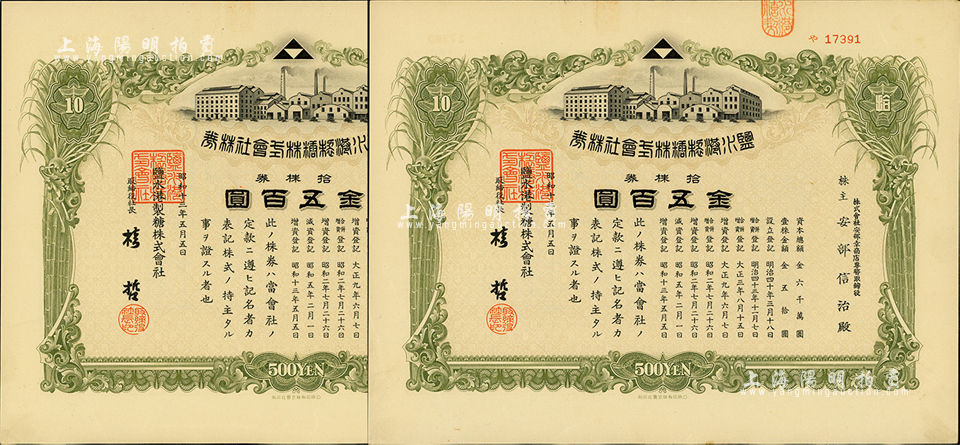 上海陽明拍賣
10
鹽水港製糖株式會社株券
拾株券
金五百圓
增資登記 大正九年六月七日
合併登記 昭和二年七月二十六日
增資登記 昭和二年七月二十六日
減資登記 昭和五年二月一日
增資登記 昭和十三年五月五日
此ノ株券ハ當會社ノ
定款ニ遵ヒ記名者カ
表記株式ノ持主タル
事ヲ證スル者也
昭和十三年五月五日
鹽水港製糖株式會社
取締役社長
哲
500YEN
や 17391
10
拾
鹽水港製糖株式會社株券
拾株券
金五百圓
株主 安部信治殿
資本總額 金六千萬圓
壹株金額 金五拾圓
設立登記 明治四十年三月十八日
合併登記 明治四十三年十一月七日
合併登記 大正三年八月十五日
增資登記 大正九年六月七日
合併登記 昭和二年七月二十六日
增資登記 昭和二年七月二十六日
減資登記 昭和五年二月一日
增資登記 昭和十三年五月五日
此ノ株券ハ當會社ノ
定款ニ遵ヒ記名者カ
表記株式ノ持主タル
事ヲ證スル者也
昭和十三年五月五日
鹽水港製糖株式會社
取締役社長
哲
500YEN
上海陽明拍賣
www.yangmingauction.com